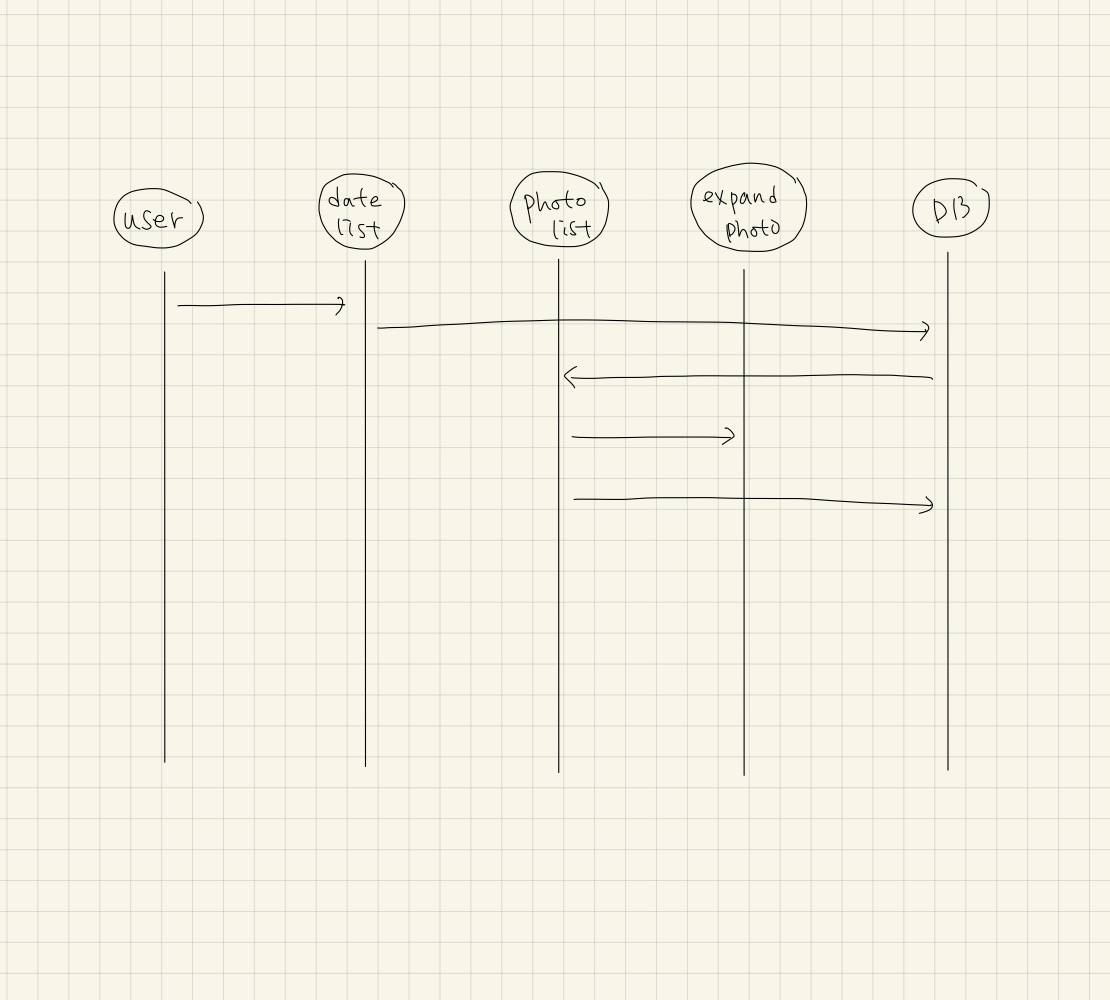 user
date
list
photo
list
expand
photo
DB